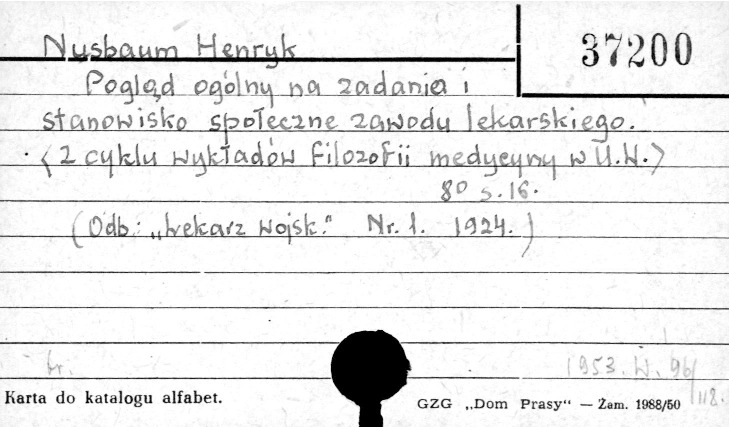 Nusbaum Henryk
37200
Pogląd ogólny na zadania i
stanowisko społeczne zawodu lekarskiego.
⟨Z cyklu wykładów filozofii medycyny w U.W.⟩
8⁰ s. 16.
(Odb: „Lekarz wojsk." Nr. 1. 1924.)
br.
1953. W. 96/118.
Karta do katalogu alfabet.
GZG „Dom Prasy“ — Zam. 1988/50